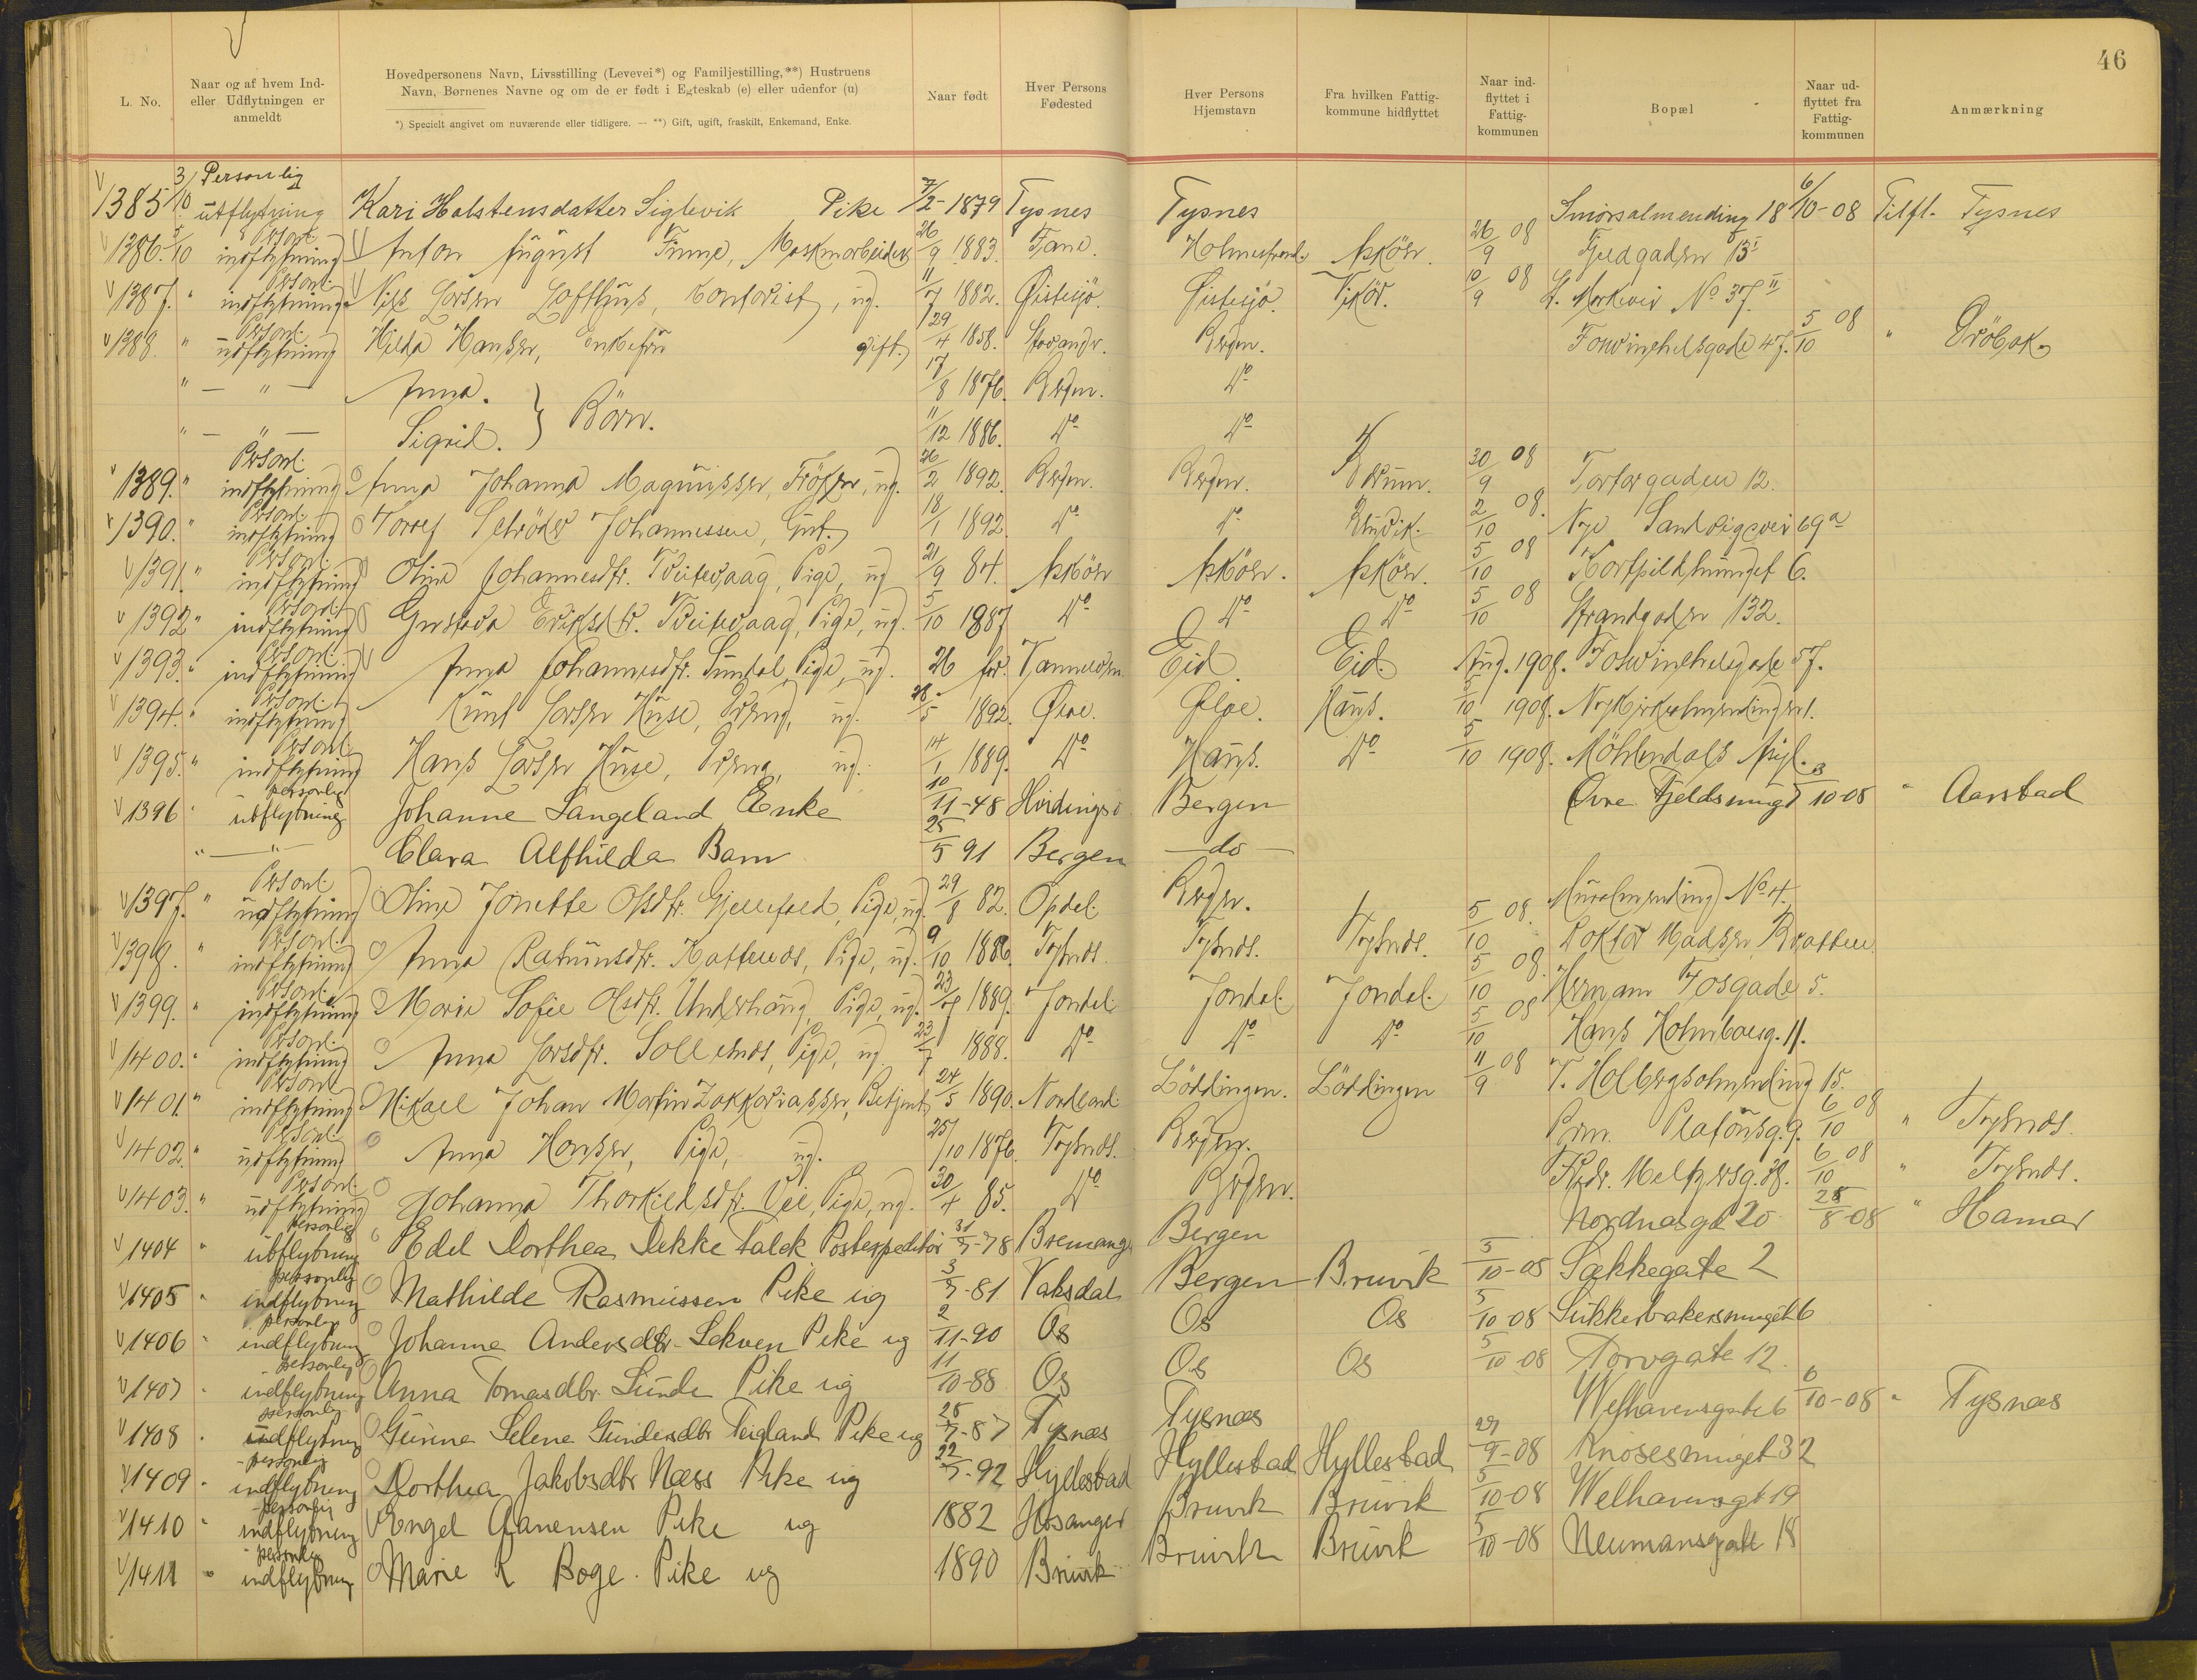 46
L. No.
Naar og af hvem Ind- eller Udflytningen er anmeldt
Hovedpersonens Navn, Livsstilling (Levevei*) og Familjestilling,**) Hustruens Navn, Børnenes Navne og om de er født i Egteskab (e) eller udenfor (u)
*) Specielt angivet om nuværende eller tidligere. — **) Gift, ugift, fraskilt, Enkemand, Enke.
Naar født
Hver Persons Fødested
Hver Persons Hjemstavn
Fra hvilken Fattig- kommune hidflyttet
Naar ind- flyttet i Fattig- kommunen
Bopæl
Naar ud- flyttet fra Fattig- kommunen
Anmærkning
1385 3/10 Personlig utflytning Kari Halstensdatter Siglevik Pike 7/2-1879 Tysnes Tysnes Smørsalmending 18 6/10-08 Tilfl. Tysnes
1386. 5/10 Personl. indflytning Anton August Finne, 26/9 1883. Fane. Holmestrand. Askøen. 26/9 08 Fjeldgaden 15 I
1387. " Personl. indflytning Nils Larsen Lofthus, Kontorist, ug. 11/7 1882. Østesjø. Østesjø Vikør. 10/9 08 St. Markevei No 37 II
1388. " Personl. udflytning Hilda Hansen, gift. 29/4 1858. Stavanger. Bergen. 47. 5/10 08 " Drøbak
" — " — Anna. 17/8 1876. Bergen. Do
" — " — Sigrid. } Børn. 11/12 1886. Do Do
1389. " Personl. indflytning Anna Johanna Magnussen, Frøken, ug. 26/2 1892. Bergen. Bergen. 30/9 08 Torvgaden 12.
1390. " Personl. indflytning Schrøder Johannessen, Gut. 18/1 1892. Do Do 2/10 08. Nye Sandvigsvei 69a
1391. " Personl. indflytning Oline Johannesdtr. Tveitevaag, Pige, ug 21/9 84. Askøen Askøen. Askøen. 5/10 08 6.
1392 " Personl. indflytning Gustava Eriksdtr. Tveitevaag, Pige, ug. 5/10 1887 Do Do Do 5/10 08 Strandgaden 132.
1393. " Personl. indflytning Anna Johannesdtr. Sundal, Pige, ug. 26 Aar. Eid. Eid. Aug. 1908. 57.
1394. " Personl. indflytning Knut Larsen Huse, Dreng, ug. 28/5 1892. Øloe. Haus. 5/10 1908. Nykirkealmendingen 1.
1395. " Personl. indflytning Hans Larsen Huse, Dreng, ug. 14/1 1889. Do Haus. Do 5/10 1908. Møhlendals
1396 " personlig utflytning Johanne Langeland Enke 10/11-48 Hvidingsø Bergen Øvre Fjeldsmug 3/10-08 " Aarstad
— " — Clara Alfhilda Barn 25/5 91 Bergen — do —
1397. " Personl. udflytning Oline Jonette Olsdtr. Pige, ug. 29/8 82. Opdal. Bergen. Muralmending No 4.
1398. " Personl. indflytning Anna Pige, ug. 9/10 1886. Tysnæs. Tysnæs. Tysnæs. 5/10 08. Doktor Madsen, Bratten
1399. " Personl. indflytning Marie Sofie Olsdtr. Underhaug, Pige, ug. 1889. Jondal. Jondal. Jondal. 5/10 08. Herman Fosgade 5.
1400. " Personl. indflytning Anna Larsdtr. Sollesnæs, Pige, ug 23/7 1888. Do Do Do 5/10 08 Hans Holmboesg. 11.
1401. " Personl. indflytning Mikael Johan Martin Zakkariassen, Betjent 24/5 1890. Nordland. Løddingen. Løddingen 11/9 08 T. Holbergsalmending 15.
1402. " Personl. udflytning Anna Hansen, Pige, ug. 25/10 1876. Tysnæs. Bergen. Platousg. 9. 6/10 08 " Tysnæs.
1403. " Personl. udflytning Johanna Thorkildsdtr. Vee, Pige, ug. 30/4 85. Do Bergen. Fredr. Meltzersg. 6/10 08 " Tysnæs.
1404 " personlig utflytning Edel Dorthea Dekke Falck Postexpeditør 31/7-78 Bremanger Bergen Nordnæsgt 20 28/8-08 " Hamar
1405 " personlig indflytning Mathilde Rasmussen Pike ug 3/7-81 Vaksdal Bergen Bruvik 5/10-08 Sækkegate 2
1406 " personlig indflytning Johanne Andersdtr. Lekven Pike ug 2/11-90 Os Os Os 5/10-08 Sukkerbakersmuget 6
1407 " personlig indflytning Anna Tomasdtr. Lunde Pike ug 11/10-88 Os Os Os 5/10-08 Torvgate 12.
1408 " personlig utflytning Gurine Selene Gundersdtr Teigland Pike ug 28/7-87 Tysnæs Tysnæs Welhavensgate 6 6/10-08 " Tysnæs
1409 " personlig indflytning Dorthea Jakobsdtr Næss Pike ug 22/7-92 Hyllestad Hyllestad Hyllestad 29/9-08 Knøsesmuget 32
1410 " personlig indflytning Engel Pike ug 1882 Hosanger Bruvik Bruvik 5/10-08 Welhavensgt 19
1411 " personlig indflytning Marie K Boge. Pike ug 1890 Bruvik Bruvik Bruvik 5/10-08 Neumansgate 18